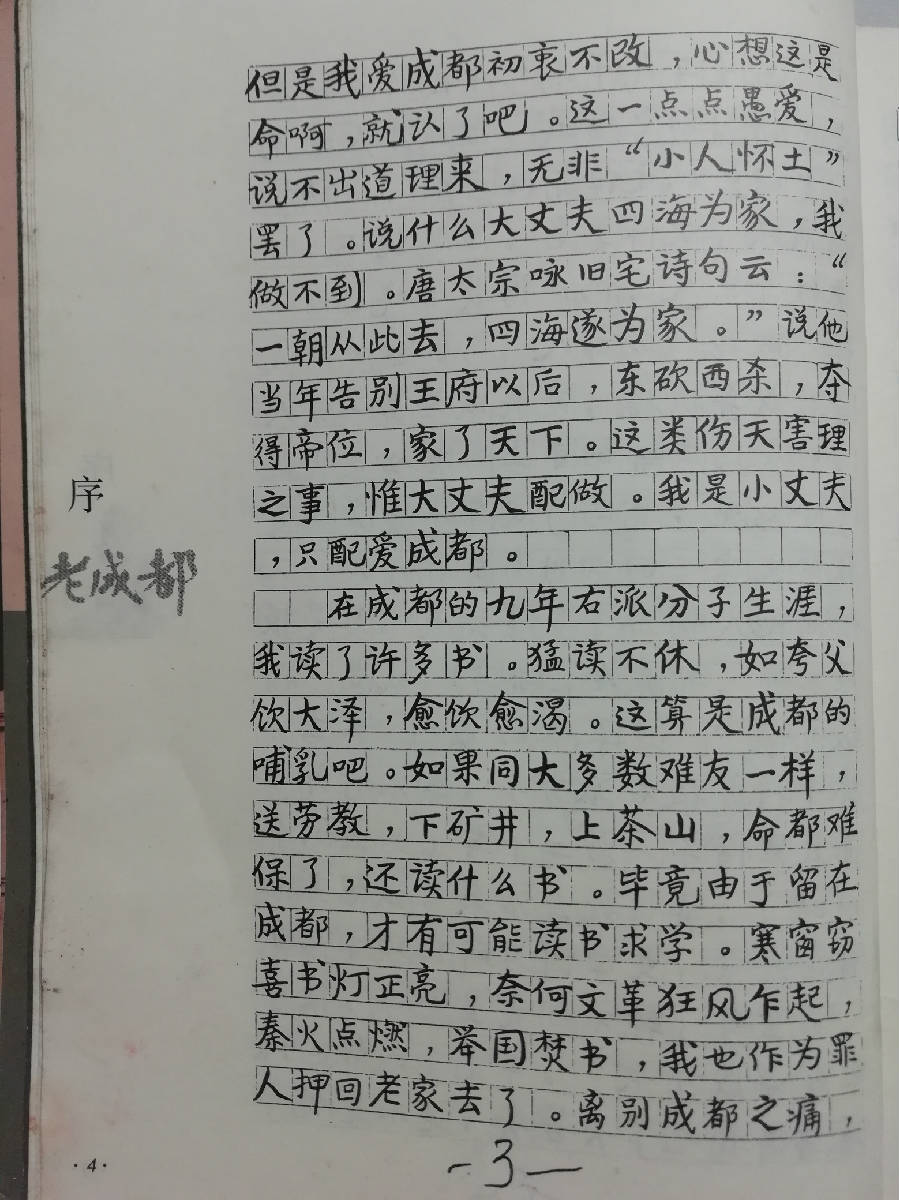 但是我爱成都初衷不改，心想这是
命啊，就认了吧。这一点点愚爱，
说不出道理来，无非“小人怀土”
罢了。说什么大丈夫四海为家，我
做不到。唐太宗咏旧宅诗句云：“
一朝从此去，四海遂为家。”说他
当年告别王府以后，东砍西杀，夺
得帝位，家了天下。这类伤天害理
之事，惟大丈夫配做。我是小丈夫
，只配爱成都。
在成都的九年右派分子生涯，
我读了许多书。猛读不休，如夸父
饮大泽，愈饮愈渴。这算是成都的
哺乳吧。如果同大多数难友一样，
送劳教，下矿井，上茶山，命都难
保了，还读什么书。毕竟由于留在
成都，才有可能读书求学。寒窗窃
喜书灯正亮，奈何文革狂风乍起，
秦火点燃，举国焚书，我也作为罪
人押回老家去了。离别成都之痛，
序
老成都
·4·
-3-